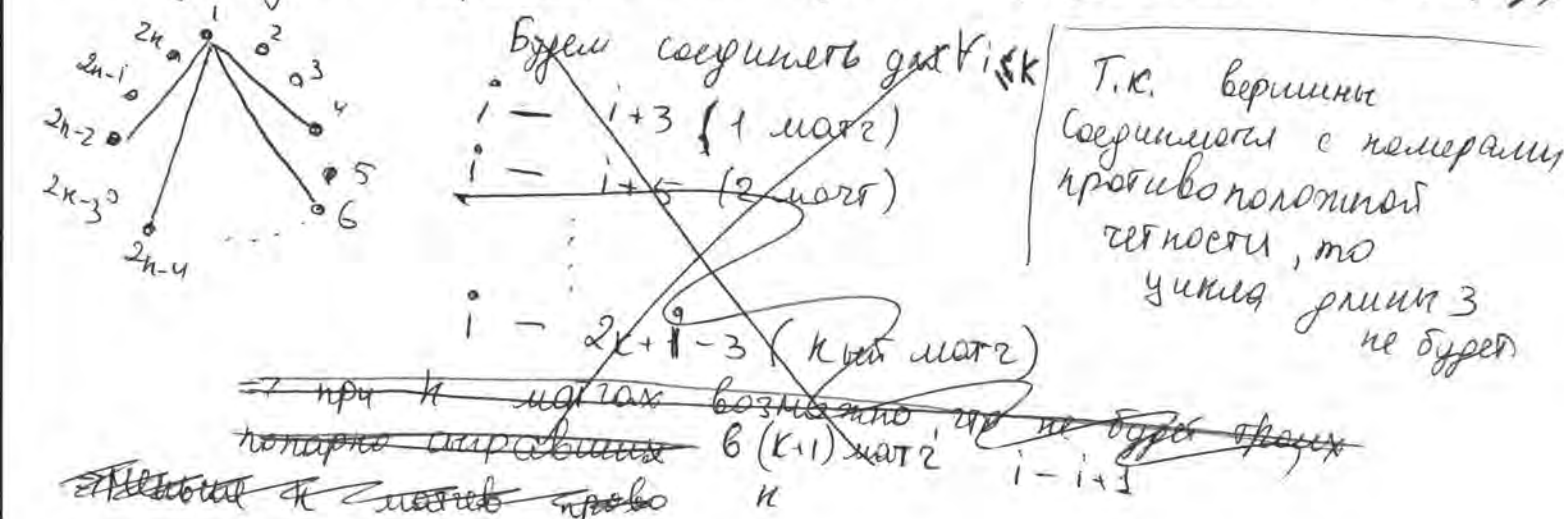 1
2n 2
2n-1 3
2n-2 4
2n-3 5
2n-4 6
Будем соединять для ∀i≤k
i — i+3 (1 матч)
i — i+5 (2 матч)
i — 2k+i-3 (к-ый матч)
=> при k матчах возможно, что не будет троих
попарно игравших в (k+1) матч
i - i+1
Т.к. вершины
соединяются с номерами
противоположной
четности, то
цикла длины 3
не будет